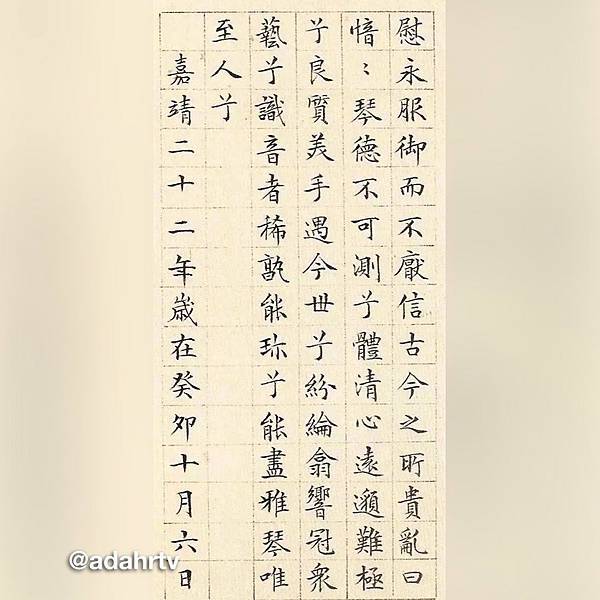 慰永服御而不厭信古今之所貴亂曰
愔〻琴德不可測兮體清心遠邈難極
兮良質美手遇今世兮紛綸翕響冠衆
藝兮識音者稀孰能珍兮能盡雅琴唯
至人兮
嘉靖二十二年歲在癸卯十月六日
@adahrtv